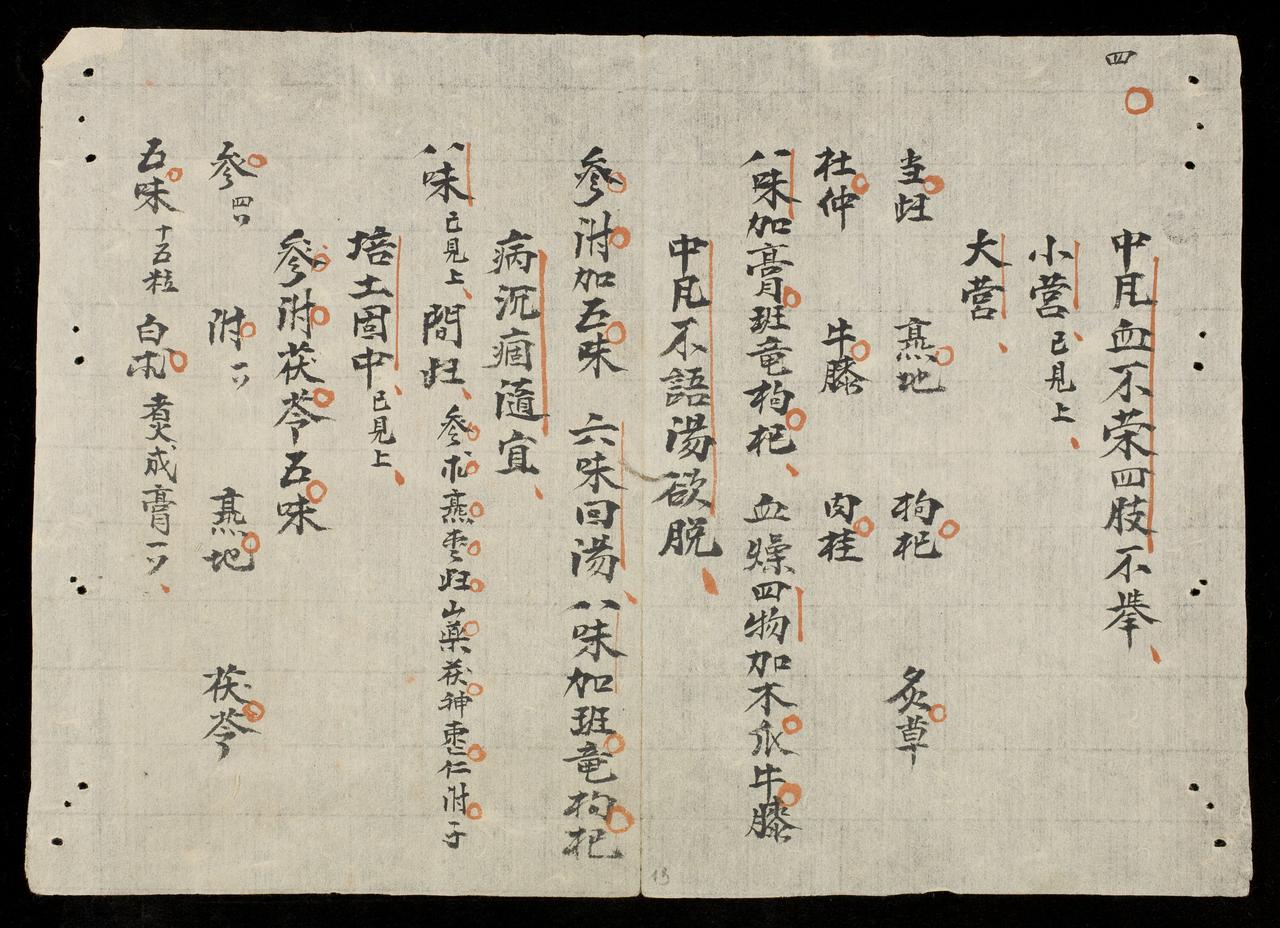 四
中風血不荣四肢不挙
小营已見上
大营
当归 熟地 枸杞 炙草
杜仲 牛膝 肉桂
八味加膏班竜枸杞 血燥四物加木瓜牛膝
中風不語湯欲脱
參附加五味 六味回湯 八味加班竜枸杞
病沉痼隨宜
八味已見上 間归 參朮熟枣归山薬茯神枣仁附子
培土固中已見上
參附茯苓五味
參四 附一 熟地 茯苓
五味十五粒 白朮煮成膏一
13